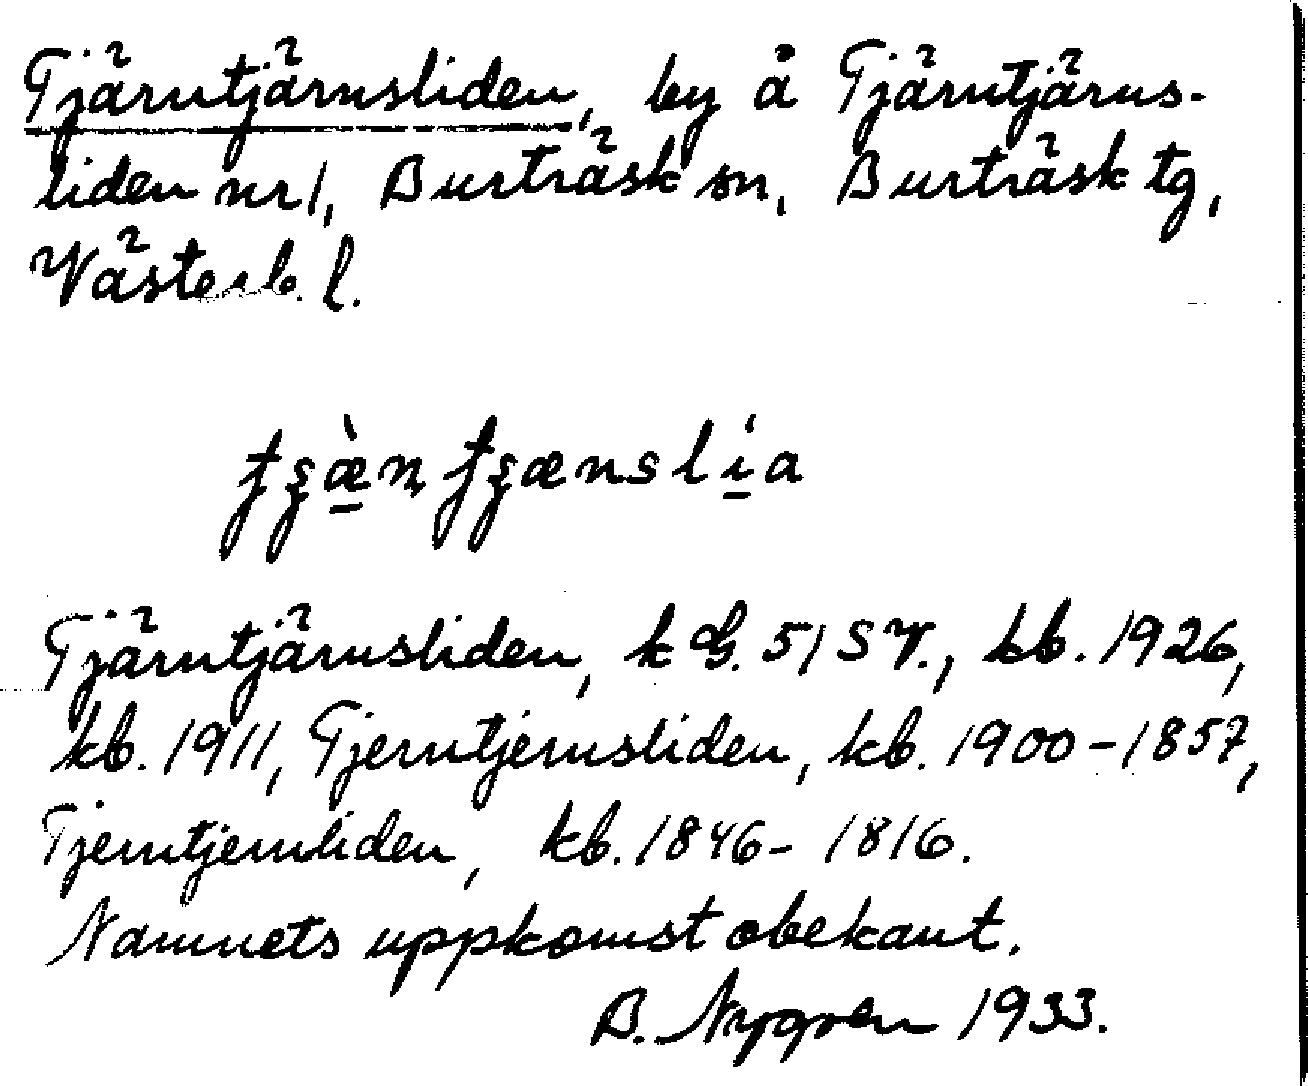 Tjärntjärnsliden, by å Tjärntjärns-
liden nr 1, Burträsk sn, Burträsk tg,
Västerb. l.
Tjärntjärnsliden, k G. 51 SV., kb. 1926,
kb. 1911, Tjerntjernsliden, kb. 1900-1857,
Tjerntjernliden, kb. 1846-1816.
Namnets uppkomst obekant.
B. Nygren 1933.